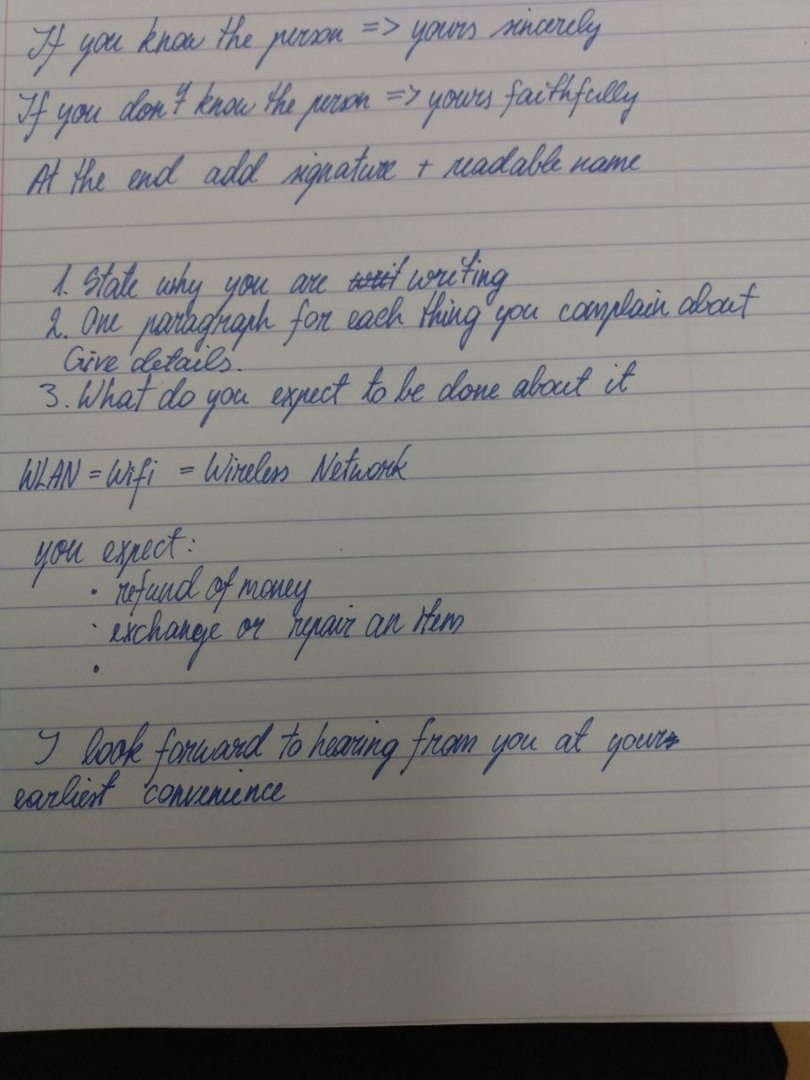 If you know the person => yours sincerely
If you don't know the person => yours faithfully
At the end add signature + readable name
1. State why you are writ writing
2. One paragraph for each thing you complain about
Give details.
3. What do you expect to be done about it
WLAN = Wifi = Wireless Network
you expect:
• refund of money
• exchange or repair an item
•
I look forward to hearing from you at your
earliest convenience